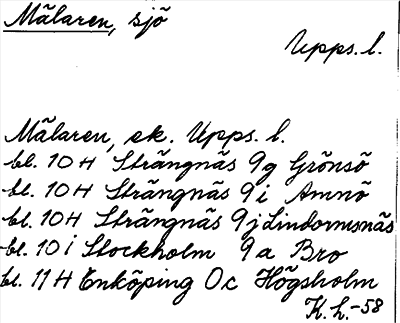 Mälaren, sjö
Upps. l.
Mälaren, ek. Upps. l.
bl. 10 H Strängnäs 9g Grönsö
bl. 10 H Strängnäs 9i Amnö
bl. 10 H Strängnäs 9j Lindormsnäs
bl. 10 i Stockholm 9a Bro
bl. 11 H Enköping 0c Högsholm
K.h.-58